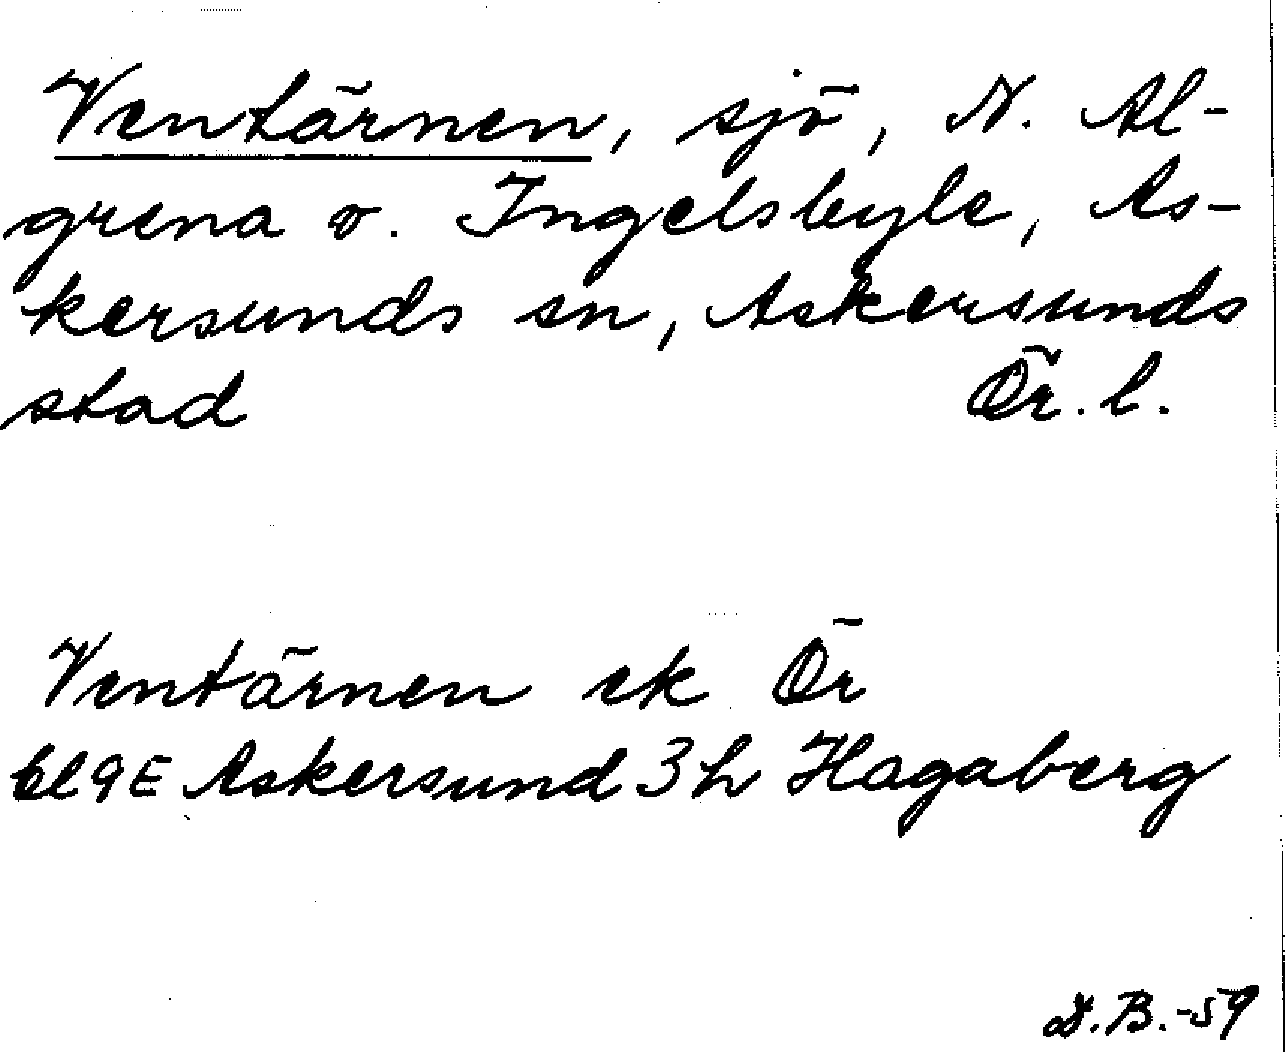 Ventärnen, sjö, N. Al-
grena o. Ingelsbyle, As-
kersunds sn, Askersunds
stad Ör. l.
Ventärnen ek Ör
bl 9E Askersund 3h Hagaberg
D.B.-59